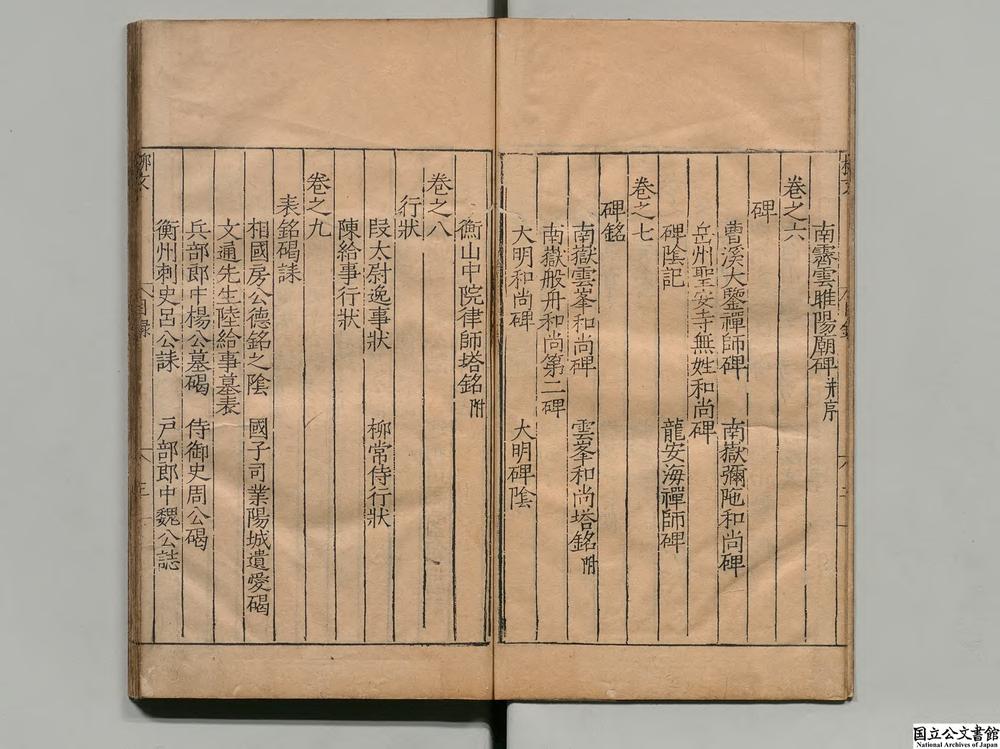 南霽雲睢陽廟碑并序
卷之六
碑
曹溪大鑒禪師碑　南嶽彌陁和尚碑
岳州聖安寺無姓和尚碑
碑隂記　龍安海禪師碑
卷之七
碑銘
南嶽雲峯和尚碑　雲峯和尚塔銘附
南嶽般舟和尚第二碑
大明和尚碑　大明碑隂
衡山中院律師塔銘附
卷之八
行狀
段太尉逸事狀　柳常侍行狀
陳給事行狀
卷之九
表銘碣誄
相國房公德銘之隂　國子司業陽城遺愛碣
文通先生陸給事墓表
兵部郎中楊公墓碣　侍御史周公碣
衡州刺史呂公誄　戸部郎中魏公誌
柳文　目録　三
国立公文書館
National Archives of Japan